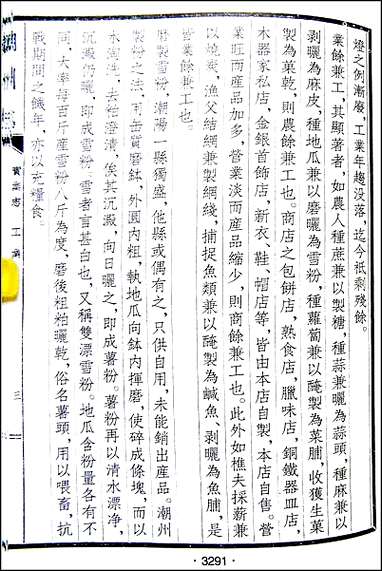 燈之例漸廢，工業年趨没落，迄今祇剩殘餘。
業餘兼工，其顯著者，如農人種蔗兼以製糖，種蒜兼曬為蒜頭，種麻兼以
剥曬為麻皮，種地瓜兼以磨曬為雪粉，種蘿蔔兼以醃製為菜脯，收獲生菓
製為菓乾，則農餘兼工也。商店之包餅店，熟食店，臘味店，銅鐵器皿店，
木器家私店，金銀首飾店，新衣、鞋、帽店等，皆由本店自製，本店自售。營
業旺而產品加多，營業淡而產品縮少，則商餘兼工也。此外如樵夫採薪兼
以燒炭，漁父結網兼製網綫，捕捉魚類兼以醃製為鹹魚、剥曬為魚脯，是
皆業餘兼工也。
磨製雪粉，潮陽一縣獨盛，他縣或偶有之，只供自用，未能銷出產品。潮州
製粉之法，用缶質磨鉢，外圓内粗，執地瓜向鉢内揮磨，使碎成條塊，而以
水淘洗，去粕澄清，俟其沉澱，向日曬之，即成薯粉。薯粉再以清水漂净，
沉澱仍曬，即成雪粉。雪者言甚白也，又稱雙漂雪粉。地瓜含粉量各有不
同，大率每百斤産雪粉八斤為度，磨後粗粕曬乾，俗名薯頭，用以喂畜，抗
戰期間之饑年，亦以充糧食。
潮州志
實業志 工業
三
·3291·